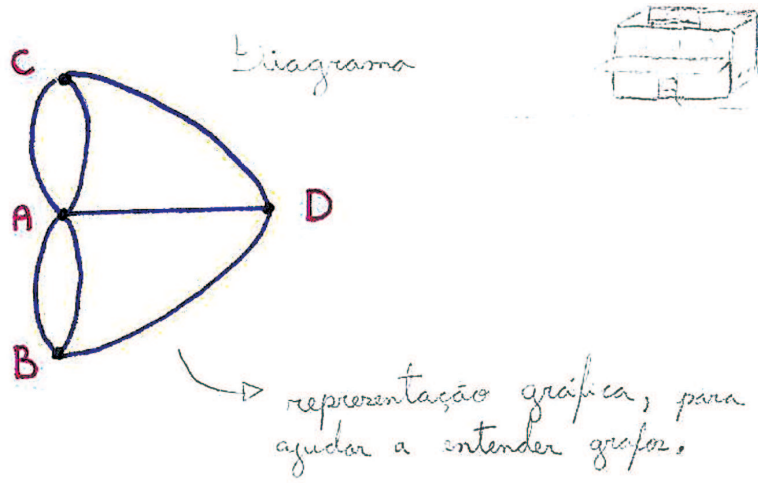 C
Diagrama
A
D
B
representação gráfica, para
ajudar a entender grafos.